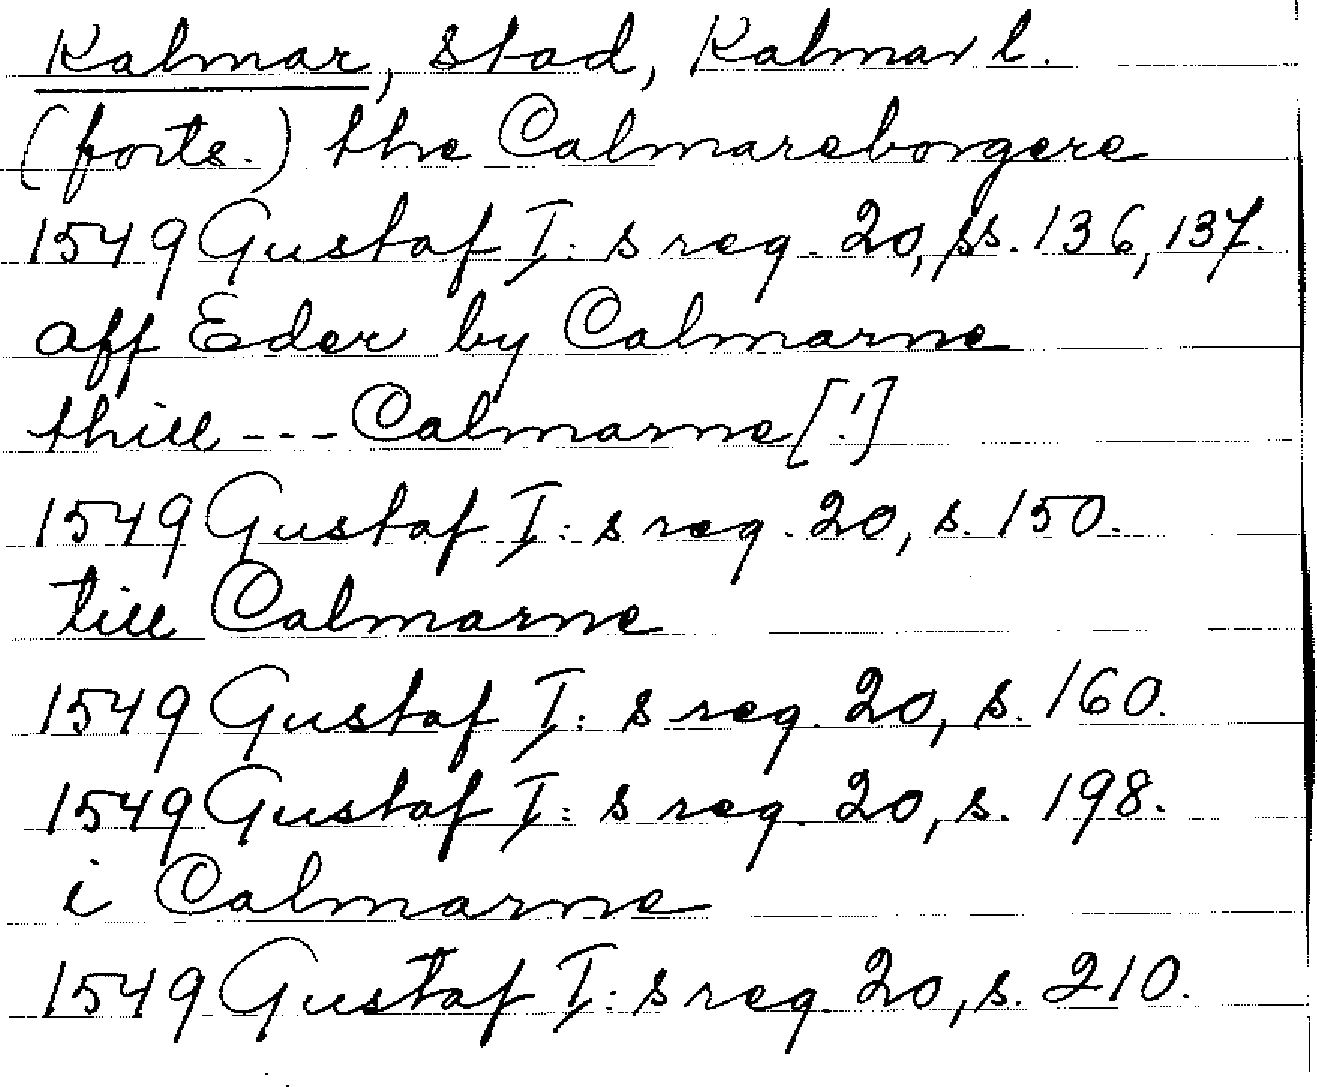 Kalmar, stad, Kalmar l.
(forts.) the Calmareborgere
1549 Gustaf I: s reg. 20, ss. 136, 137.
aff Eder by Calmarne
thill --- Calmarne [!]
1549 Gustaf I: s reg. 20, s. 150.
till Calmarne
1549 Gustaf I: s reg. 20, s. 160.
1549 Gustaf I: s reg. 20, s. 198.
i Calmarne
1549 Gustaf I: s reg. 20, s. 210.